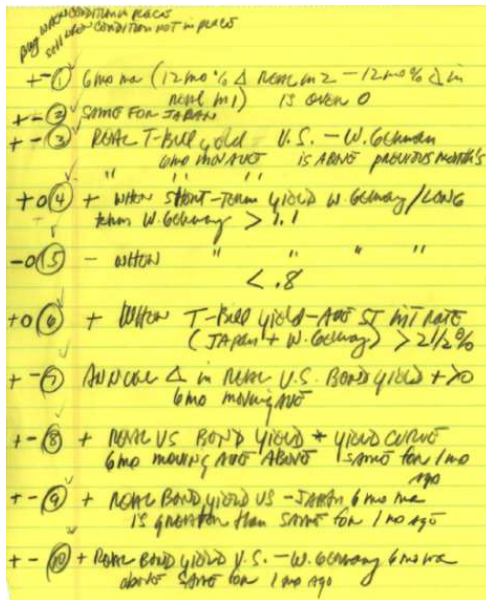 Buy when condition in place
sell when condition not in place
+ - ① 6mo ma (12mo % Δ real m2 - 12mo % Δ in
real m1) is over 0
+ - ② same for Japan
+ - ③ Real T-Bill yield U.S. - W. German
6mo mov ave is above previous month's
" " "
+ 0 ④ + when short-term yield W. Germany / long
term W. Germany > 1.1
- 0 ⑤ - when " " " "
< .8
+ 0 ⑥ + when T-Bill yield - ave ST int rate
(Japan + W. Germany) > 2 1/2%
+ - ⑦ Annual Δ in real U.S. bond yield + >0
6mo moving ave
+ - ⑧ + real US bond yield * yield curve
6mo moving ave above same for 1mo
ago
+ - ⑨ + real bond yield US - Japan 6mo ma
is greater than same for 1mo ago
+ - ⑩ + real bond yield U.S. - W. Germany 6mo ma
above same for 1mo ago